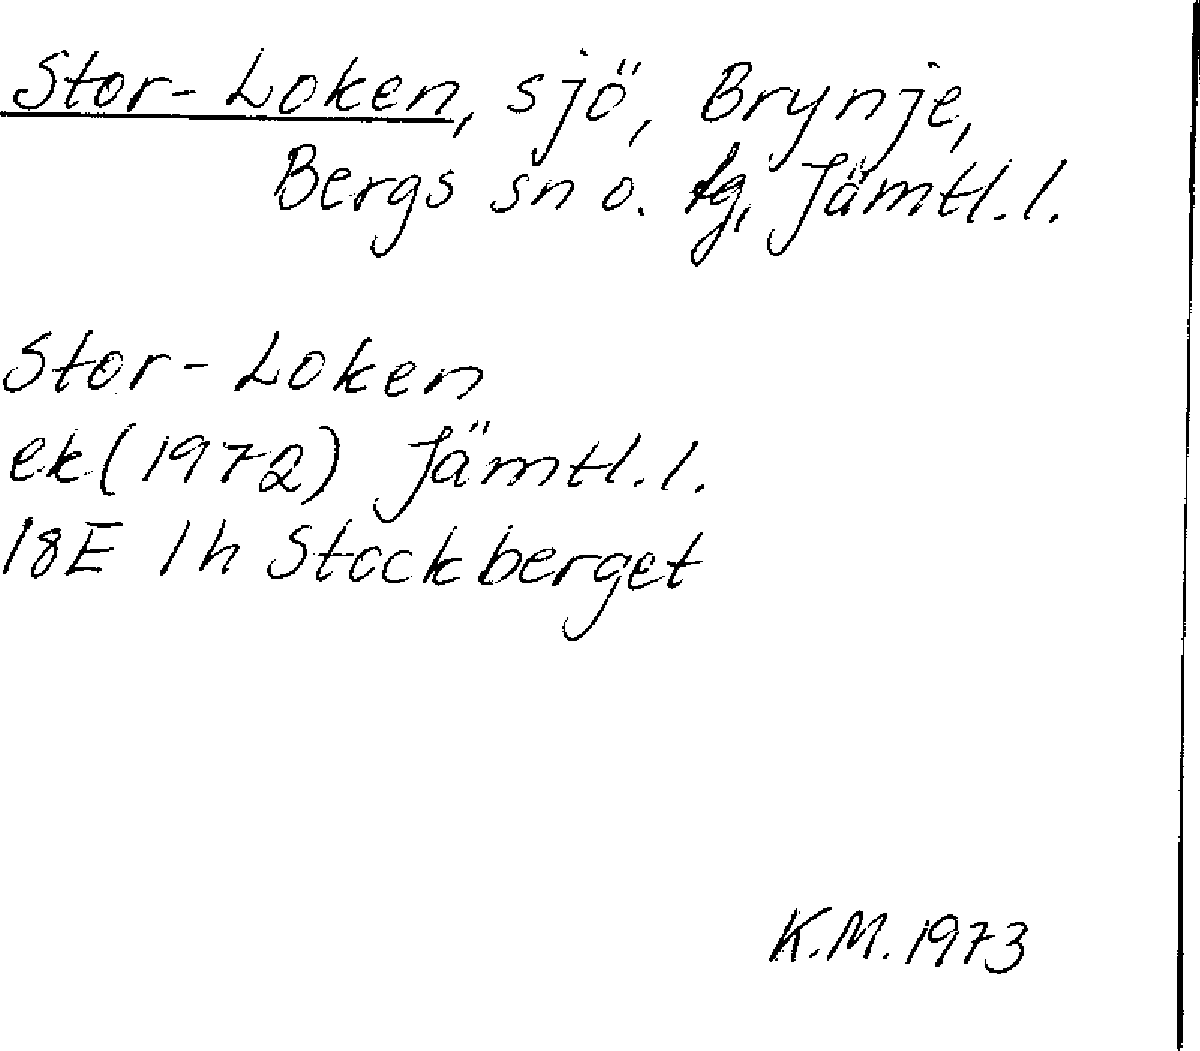 Stor-Loken, sjö, Brynje,
Bergs sn o. tg, Jämtl. l.
Stor-Loken
ek (1972) Jämtl. l.
18E 1h Stockberget
K.M. 1973